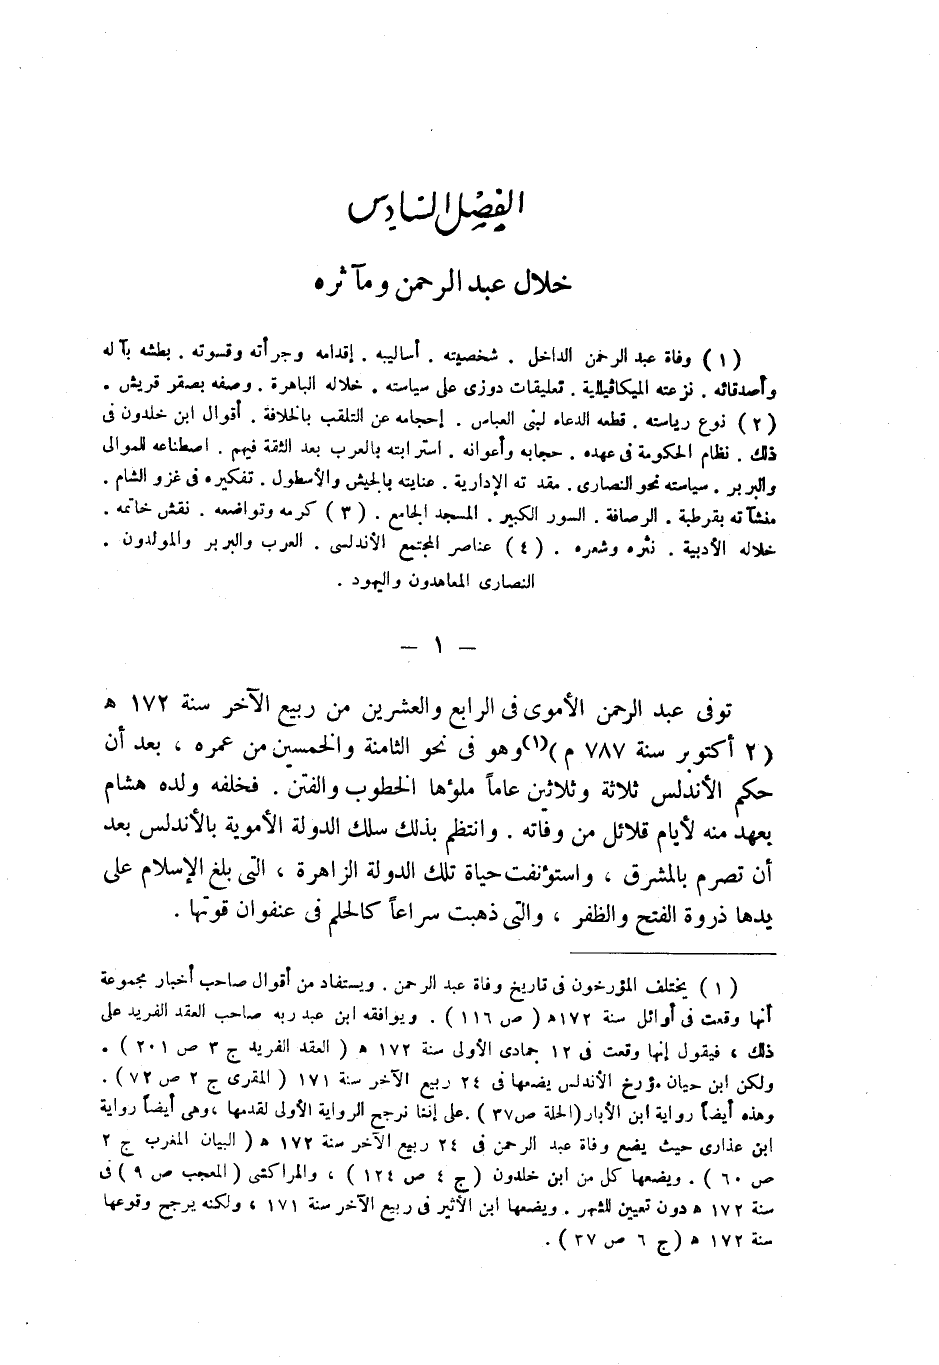 الفصل السادس
خلال عبد الرحمن ومآثره
(١) وفاة عبد الرحمن الداخل . شخصيته . أساليبه . إقدامه وجرأته وقسوته . بطشه بآله
وأصدقائه . نزعته الميكاڤيلية . تعليقات دوزى على سياسته . خلاله الباهرة . وصفه بصقر قريش .
(٢) نوع رياسته . قطعه الدعاء لبنى العباس . إحجامه عن التلقب بالخلافة . أقوال ابن خلدون فى
ذلك . نظام الحكومة فى عهده . حجابه وأعوانه . استرابته بالعرب بعد الثقة فيهم . اصطناعه للموالى
والبربر . سياسته نحو النصارى . مقدرته الإدارية . عنايته بالجيش والأسطول . تفكيره فى غزو الشام .
منشآته بقرطبة . الرصافة . السور الكبير . المسجد الجامع . (٣) كرمه وتواضعه . نقش خاتمه .
خلاله الأدبية . نثره وشعره . (٤) عناصر المجتمع الأندلسى . العرب والبربر والمولدون .
النصارى المعاهدون واليهود .
– ١ –
توفى عبد الرحمن الأموى فى الرابع والعشرين من ربيع الآخر سنة ١٧٢ ه
(٢ أكتوبر سنة ٧٨٧ م)(١) وهو فى نحو الثامنة والخمسين من عمره ، بعد أن
حكم الأندلس ثلاثة وثلاثين عاماً ملؤها الخطوب والفتن . فخلفه ولده هشام
بعهد منه لأيام قلائل من وفاته . وانتظم بذلك سلك الدولة الأموية بالأندلس بعد
أن تصرم بالمشرق ، واستؤنفت حياة تلك الدولة الزاهرة ، التى بلغ الإسلام على
يدها ذروة الفتح والظفر ، والتى ذهبت سراعاً كالحلم فى عنفوان قوتها .
(١) يختلف المؤرخون فى تاريخ وفاة عبد الرحمن . ويستفاد من أقوال صاحب أخبار مجموعة
أنها وقعت فى أوائل سنة ١٧٢ه (ص ١١٦) . ويوافقه ابن عبد ربه صاحب العقد الفريد على
ذلك ، فيقول إنها وقعت فى ١٢ جمادى الأولى سنة ١٧٢ ه (العقد الفريد ج ٣ ص ٢٠١) .
ولكن ابن حيان مؤرخ الأندلس يضعها فى ٢٤ ربيع الآخر سنة ١٧١ (المقرى ج ٢ ص ٧٢) .
وهذه أيضاً رواية ابن الأبار (الحلة ص ٣٧) . على إننا نرجح الرواية الأولى لقدمها ، وهى أيضاً رواية
ابن عذارى حيث يضع وفاة عبد الرحمن فى ٢٤ ربيع الآخر سنة ١٧٢ ه (البيان المغرب ج ٢
ص ٦٠) . ويضعها كل من ابن خلدون (ج ٤ ص ١٢٤) ، والمراكشى (المعجب ص ٩) فى
سنة ١٧٢ ه دون تعيين للشهر . ويضعها ابن الأثير فى ربيع الآخر سنة ١٧١ ، ولكنه يرجح وقوعها
سنة ١٧٢ ه (ج ٦ ص ٣٧) .